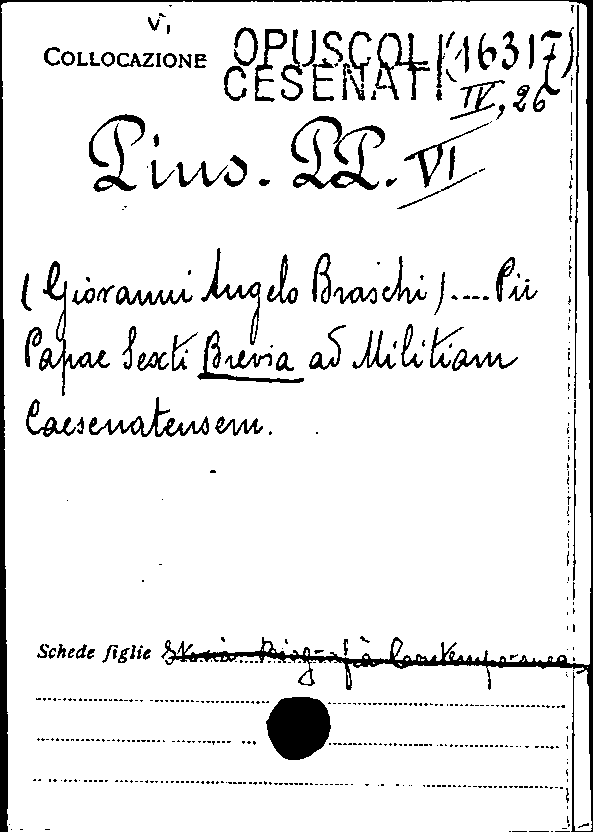 VI
COLLOCAZIONE OPUSCOLI (16317)
CESENATI IV, 26
Pius. PP. VI
(Giovanni Angelo Braschi).... Pii
Papae Sexti Brevia ad Militiam
Caesenatensem.
Schede figlie Storia Biografia Contemporanea